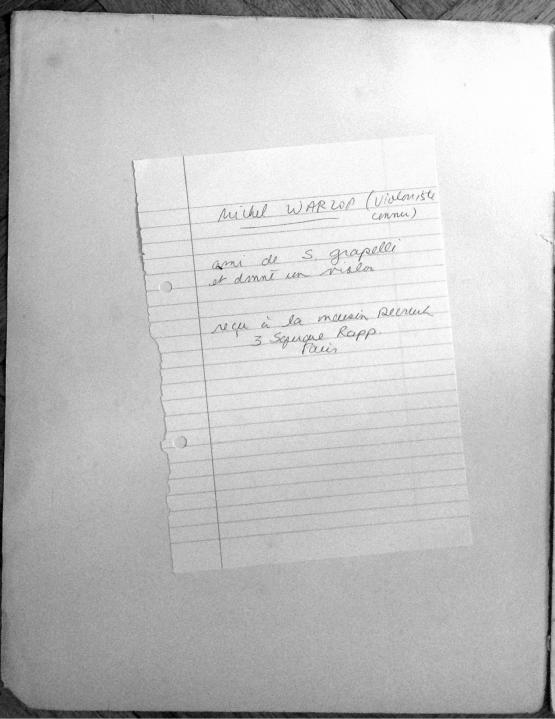 Michel WARLOP (Violoniste
connu)
ami de S. grapelli
et donné un violon
reçu à la maison
3 Square Rapp.
Paris